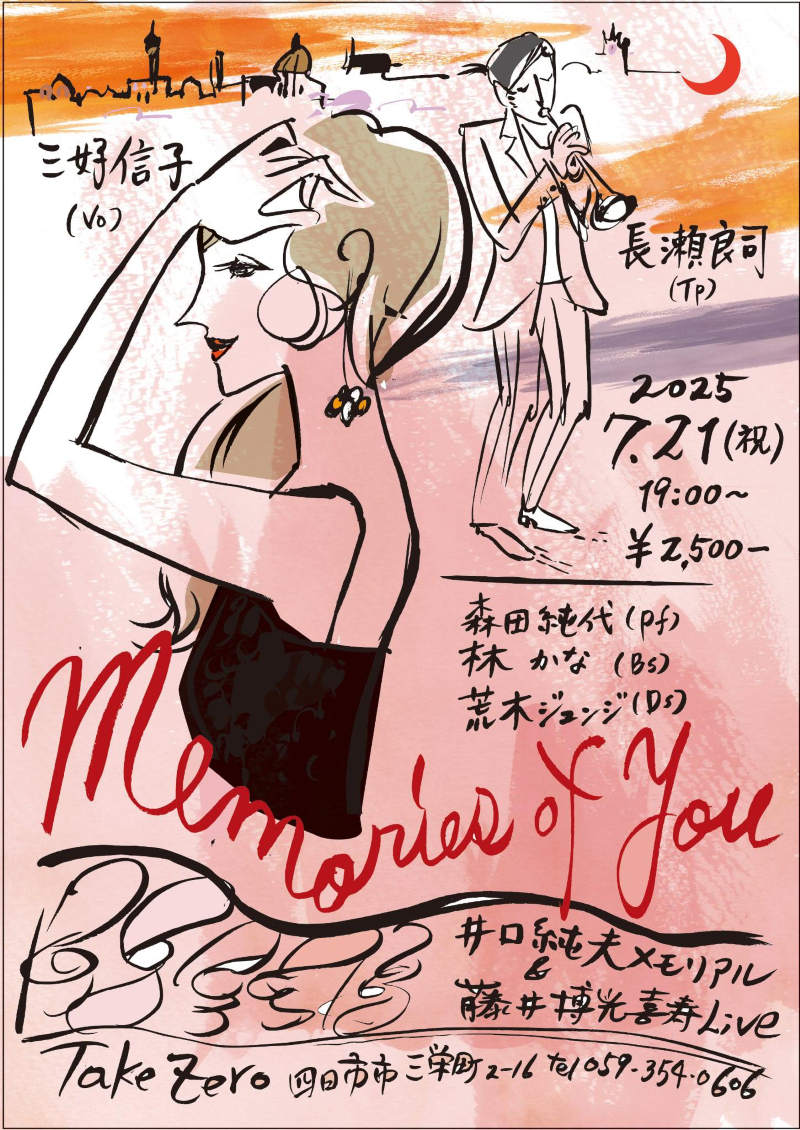 三好信子
(Vo)
長瀬良司
(Tp)
2025
7.21(祝)
19:00~
¥2,500-
森田純代(pf)
林 かな (Bs)
荒木ジュンジ(Ds)
Memories of You
井口純夫メモリアル
&
藤井博光喜寿Live
Take Zero 四日市市三栄町2-16 tel 059-354-0606